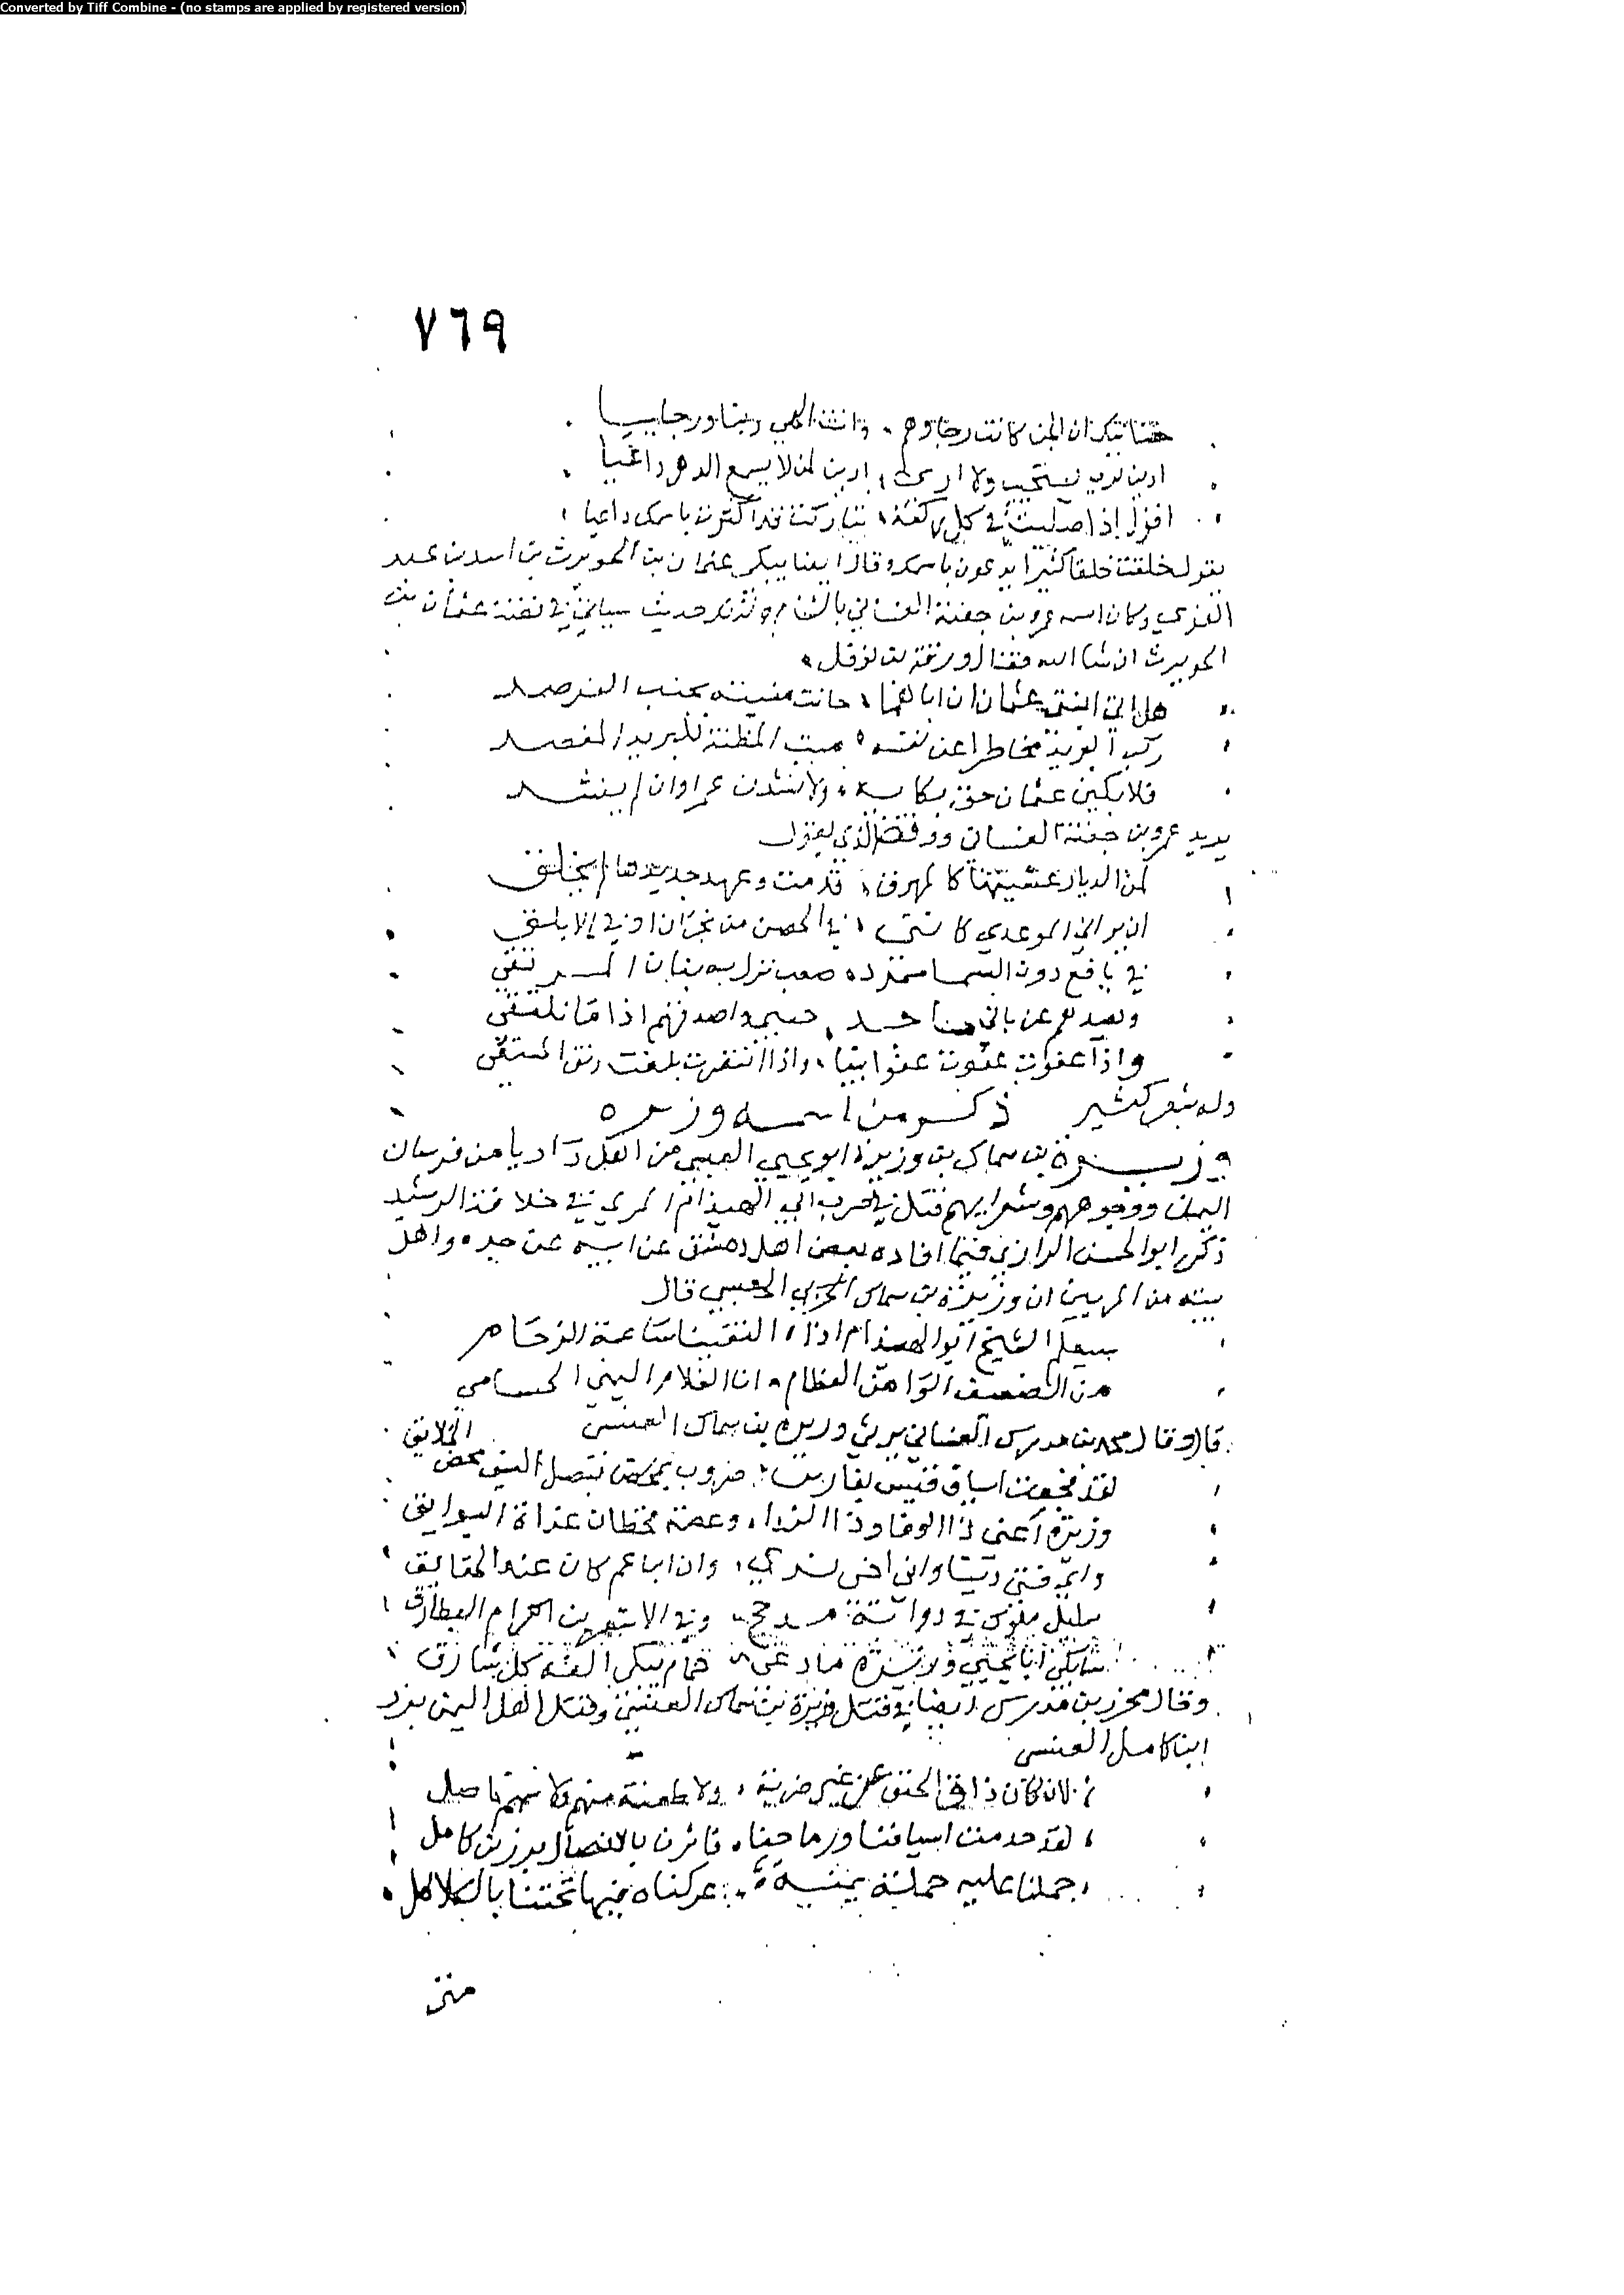 Converted by Tiff Combine - (no stamps are applied by registered version)
٧٦٩
ان الجن كانت رجاؤهم وانت الهي ربنا ورجائيا
ادين لرب يستجيب ولا ارى ادين لمن لا يسمع الدهر داعيا
اقول اذا صليت في كل تباركت قد اكثرت باسمك داعيا
يقول خلقت خلقا كثيرا يدعون باسمك وقال ايضا يبكي عثمان بن الحويرث بن اسد بن عبد
العزى وكان عمرو بن جفنة الغساني بالشام حديث سياتي في قصة عثمان بن
الحويرث ان شا الله فقال ورقة بن نوفل
هل اتى ابنتي عثمان ان اباهما حانت منيته بجنب الفرصد
ركب البريد مخاطرا عن نفسه ميت المظنة للبريد المقصد
فلابكين عثمان حق بكايه ولانشدن عمرا وان لم ينشد
يريد عمرو بن جفنة الغساني وورقة الذي يقول
لمن الديار غشيتها كالمهرق قدمت وعهد جديدها لم يخلق
الموعدي كانني في الحصن من نجران او في الابلق
في يافع دون السما ممرد صعب تزل به بنان المرتقي
ويصدهم عني باني ماجد حسبي واصدقهم اذا ما نلتقي
واذا عفوت عفوت عفوا بينا واذا انتصرت بلغت رنق المستقي
وله شعر كثير ذكر من اسمه وزيره
وزيرة بن سماك بن وزيرة ابو يحيى العبسي من اهل داريا من فرسان
اليمن ووجوههم وشعرايهم قتل في حرب ابي الهيذام المري في خلافة الرشيد
ذكر ابو الحسن الرازي فيما افاده بعض اهل دمشق عن ابيه عن جده واهل
بيته من المريين ان وزيرة بن سماك العبسي قال
سيعلم الشيخ ابو الهيذام اذا التقينا ساعة الزحام
من الضعيف الواهن العظام انا الغلام اليمني الحسامي
قال وقال محمد بن مدرس الغساني يرثي وزيرة بن سماك العنسي
لقد فجعت اسياف قيس بفارس ضروب بنصل السيف محض الخلايق
وزيرة اعني ذا الوفا وذا الندا وعصمة قحطان غداة البوايق
واي فتى دنيا واي اخي ندى واي ابن عم كان عند الحقايق
سليل ملوك في مدحج وفي الاشعرين الكرام البطارق
سابكي ابا يحيى وزيرة ما دعى حمام يبكي الفه كل شارق
وقال محرز بن مدرس ايضا في قتل وزيرة بن سماك العنسي وقتل اهل اليمن برز
ابنا كامل العنسي
لان كان ذاق الحتف من غير ضربة ولا طعنة منهم ولا سهم ناصل
لقد حدمت اسيافنا ورماحنا بالانصال برز بن كامل
حملنا عليه حملة يمنية عركناه فيها تحتنا بالكلاكل
متى